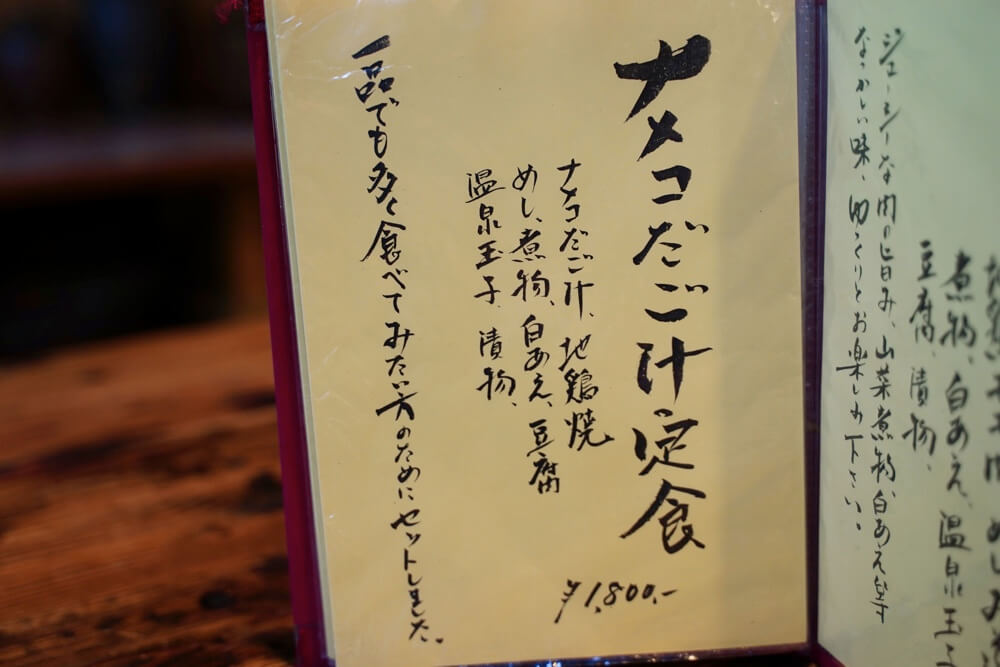 煮物、白あえ、温泉玉
豆腐、漬物、
ジューシーな肉の旨み、山菜煮物、白あえ等
なつかしい味、ゆっくりとお楽しみ下さい。
ナメコだご汁定食
ナメコだご汁、地鶏焼
めし、煮物、白あえ、豆腐
温泉玉子、漬物、
¥1,800.-
一品でも多く食べてみたい方のためにセットしました。